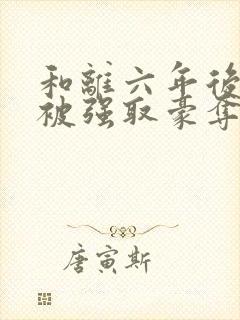 和離六年後
被强取豪奪
唐寅斯